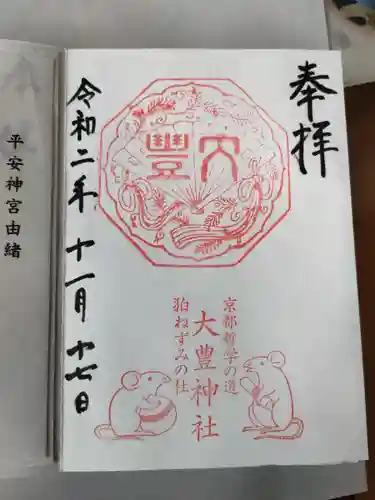 奉拝
大豊
京都哲学の道
大豊神社
狛ねずみの社
令和二年 十一月 十七日
平安神宮由緒